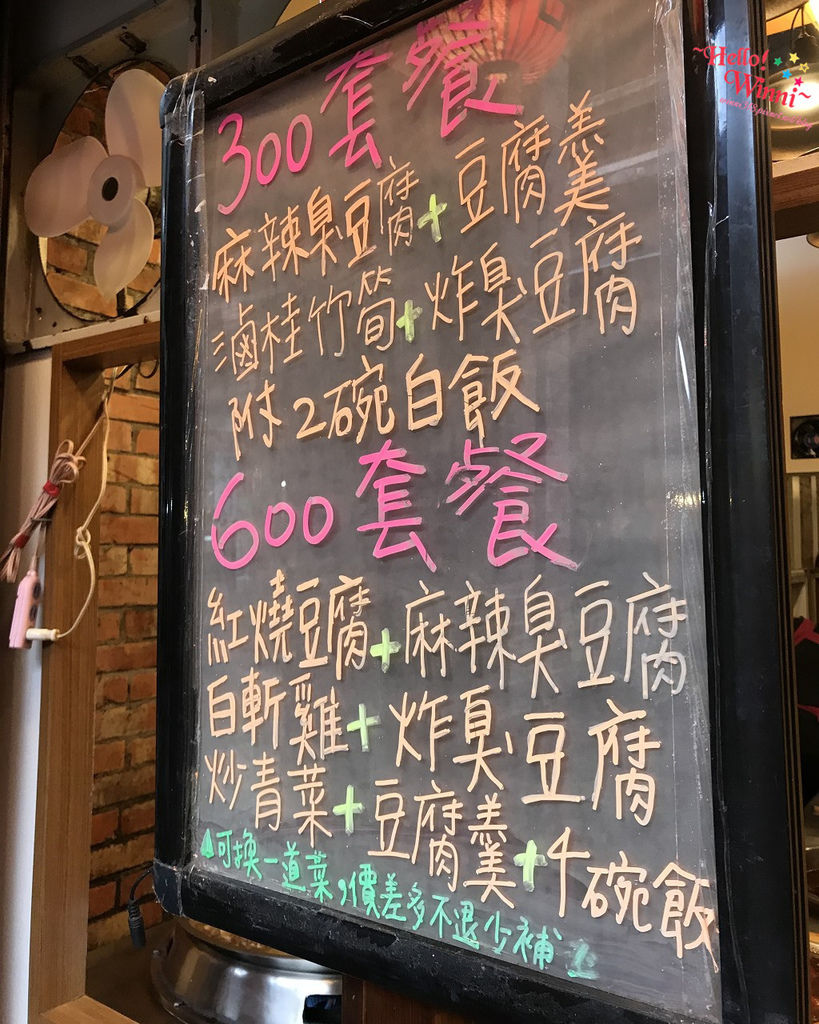 ~Hello!
Winni~
300套餐
麻辣臭豆腐+豆腐羹
滷桂竹筍+炸臭豆腐
附2碗白飯
600套餐
紅燒豆腐+麻辣臭豆腐
白斬雞+炸臭豆腐
炒青菜+豆腐羹+4碗飯
可換一道菜,價差多不退少補